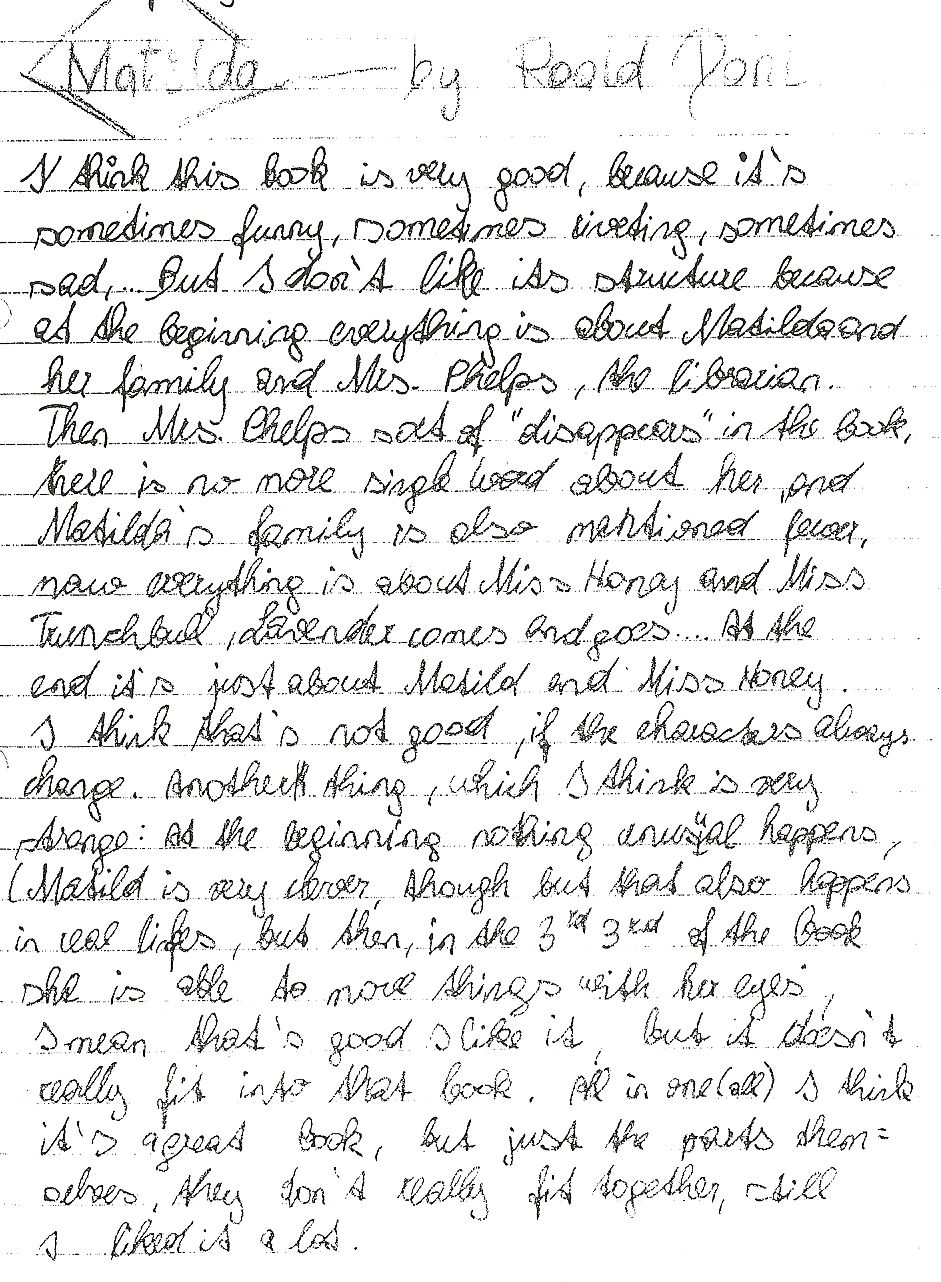 Matilda by Roald Dahl
I think this book is very good, because it's
sometimes funny, sometimes riveting, sometimes
sad,... But I don't like its structure because
at the beginning everything is about Matilda and
her family and Mrs. Phelps, the librarian.
Then Mrs. Phelps sort of "disappears" in the book,
there is no more single word about her, and
Matilda's family is also mentioned fewer,
now everything is about Miss Honey and Miss
Trunchbull, Lavender comes and goes.... At the
end it's just about Matild and Miss Honey.
I think that's not good, if the characters always
change. Another thing, which I think is very
strange: At the beginning nothing unusual happens,
(Matild is very clever, though but that also happens
in real lifes, but then, in the 3rd 3rd of the book
she is able to move things with her eyes,
I mean that's good I like it, but it doesn't
really fit into that book. All in one (all) I think
it's a great book, but just the parts them=
selves, they don't really fit together, still
I liked it a lot.